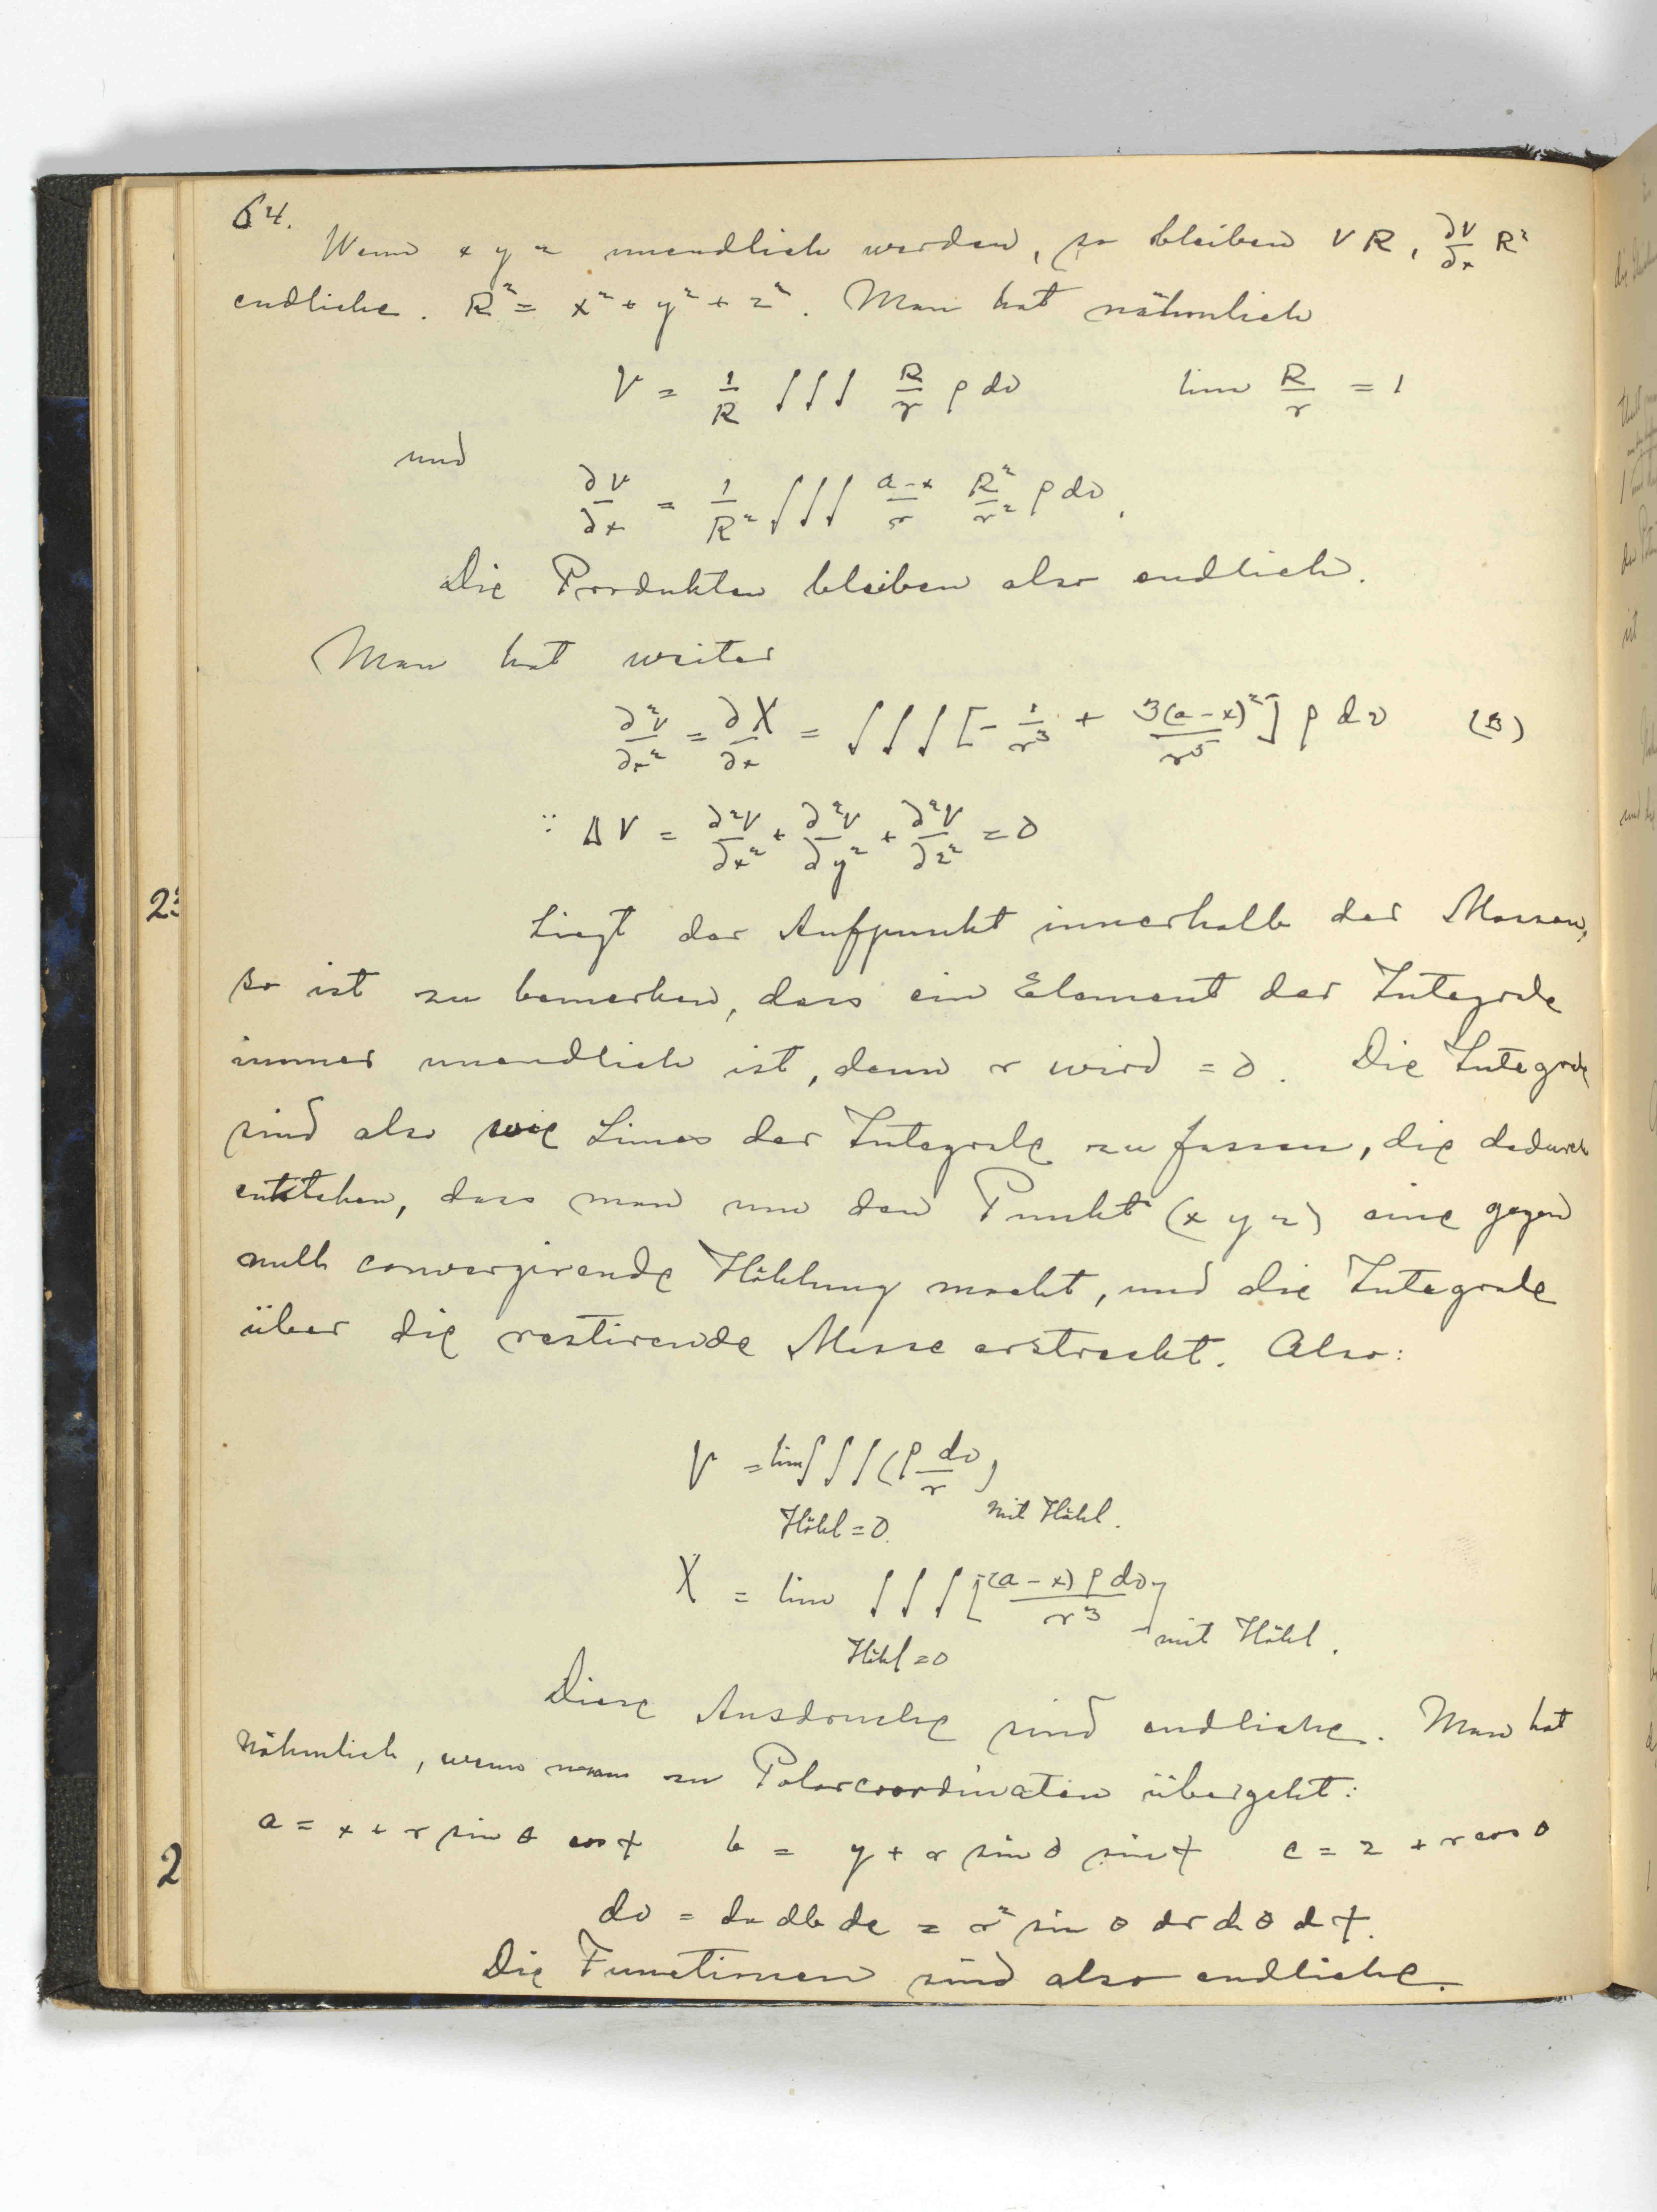 64.
Wenn x y z unendlich werden, so bleiben VR, ∂V/∂x R²
endliche. R² = x² + y² + z². Man hat nähmlich
V = 1/R ∫∫∫ R/r ρ dv lim R/r = 1
und
∂V/∂x = 1/R² ∫∫∫ (a-x)/r R²/r² ρ dv.
Die Produkten bleiben also endlich.
Man hat weiter
∂²V/∂x² = ∂X/∂x = ∫∫∫ [- 1/r³ + 3(a-x)²/r⁵] ρ dv (3)
∵ ΔV = ∂²V/∂x² + ∂²V/∂y² + ∂²V/∂z² = 0
23
Liegt der Aufpunkt innerhalb der Massen,
so ist zu bemerken, dass ein Element der Integrale
immer unendlich ist, denn r wird = 0. Die Integrale
sind also wie Limes der Integrale zu fassen, die dadurch
entstehen, dass man um den Punkt (x y z) eine gegen
null convergirende Höhlung macht, und die Integrale
über die restirende Masse erstreckt. Also:
V = lim ∫∫∫ (ρ dv/r)
Höhl = 0. mit Höhl.
X = lim ∫∫∫ [(a-x) ρ dv / r³]
mit Höhl.
Höhl = 0
Diese Ausdrucke sind endliche. Man hat
nähmlich, wenn man zu Polarcoordinaten übergeht:
a = x + r sin θ cos φ b = y + r sin θ sin φ c = z + r cos θ
2
dv = da db dc = r² sin θ dr dθ dφ.
Die Functionen sind also endliche.